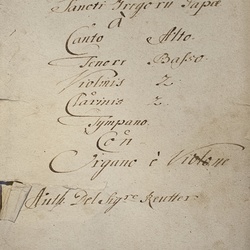 Sancti Gregorii Papæ
â
Canto Alto
Tenore Basso
Violinis 2.
Clarinis 2.
Tympano.
Con
Organo è Violone
Auth. Del Sigre Reutter